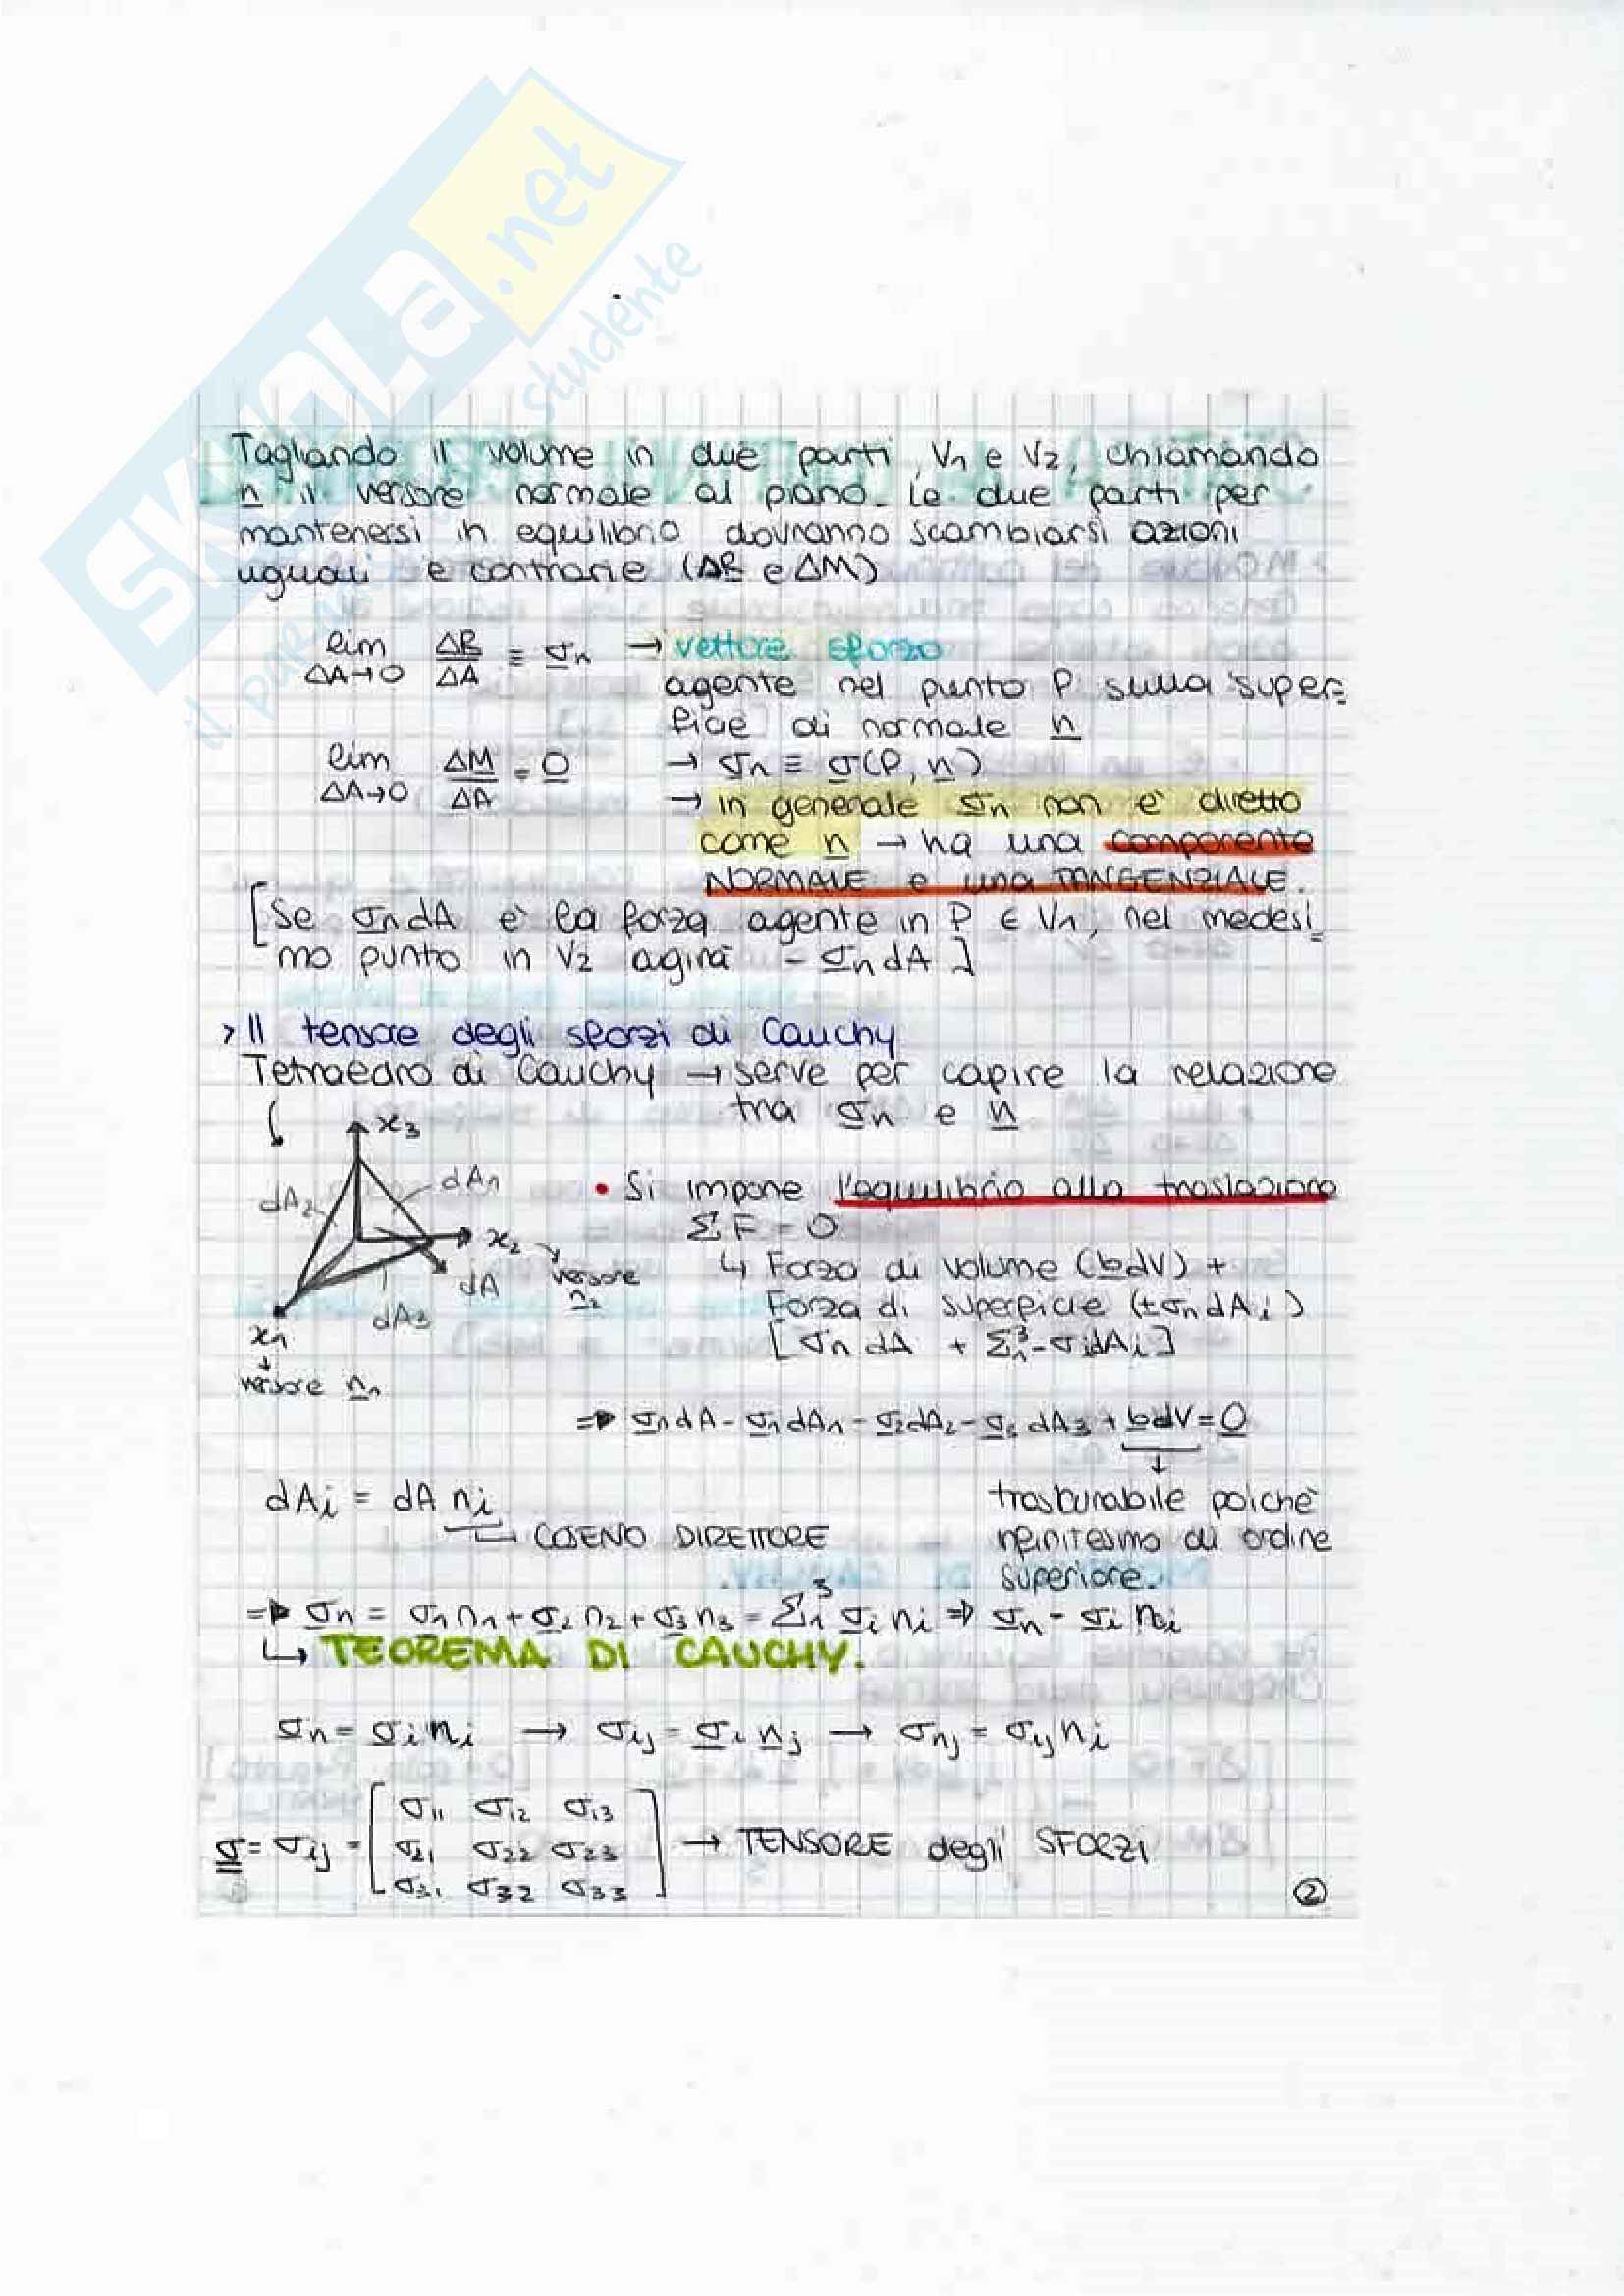 SKUOLA.net
il paradiso dello studente
Tagliando il volume in due parti V1 e V2, chiamando
n il versore normale al piano. Le due parti per
mantenersi in equilibrio dovranno scambiarsi azioni
uguali e contrarie (ΔR e ΔM)
lim ΔA→0 ΔR/ΔA ≡ σn → vettore sforzo
agente nel punto P sulla super=
ficie di normale n
lim ΔA→0 ΔM/ΔA = 0 → σn ≡ σ(P, n)
→ in generale σn non è diretto
come n → ha una componente
NORMALE e una TANGENZIALE.
[Se σn dA è la forza agente in P ∈ V1, nel medesi=
mo punto in V2 agirà - σn dA]
> Il tensore degli sforzi di Cauchy
Tetraedro di Cauchy → serve per capire la relazione
tra σn e n
x3
dA1
dA2
• Si impone l'equilibrio alla traslazione
Σ F = 0
x2
versore n2
dA
dA3
x1
versore n1
↳ Forza di volume (b dV) +
Forza di superficie (±σn dAi)
[σn dA + Σ1^3 -σi dAi]
⇒ σn dA - σ1 dA1 - σ2 dA2 - σ3 dA3 + b dV = 0
dAi = dA ni
COSENO DIRETTORE
trascurabile poichè
infinitesimo di ordine
superiore.
⇒ σn = σ1 n1 + σ2 n2 + σ3 n3 = Σ1^3 σi ni ⇒ σn = σi ni
↳ TEOREMA DI CAUCHY.
σn = σi ni → σij = σi nj → σnj = σij ni
σ = σij = [σ11 σ12 σ13
σ21 σ22 σ23
σ31 σ32 σ33] → TENSORE degli SFORZI
2